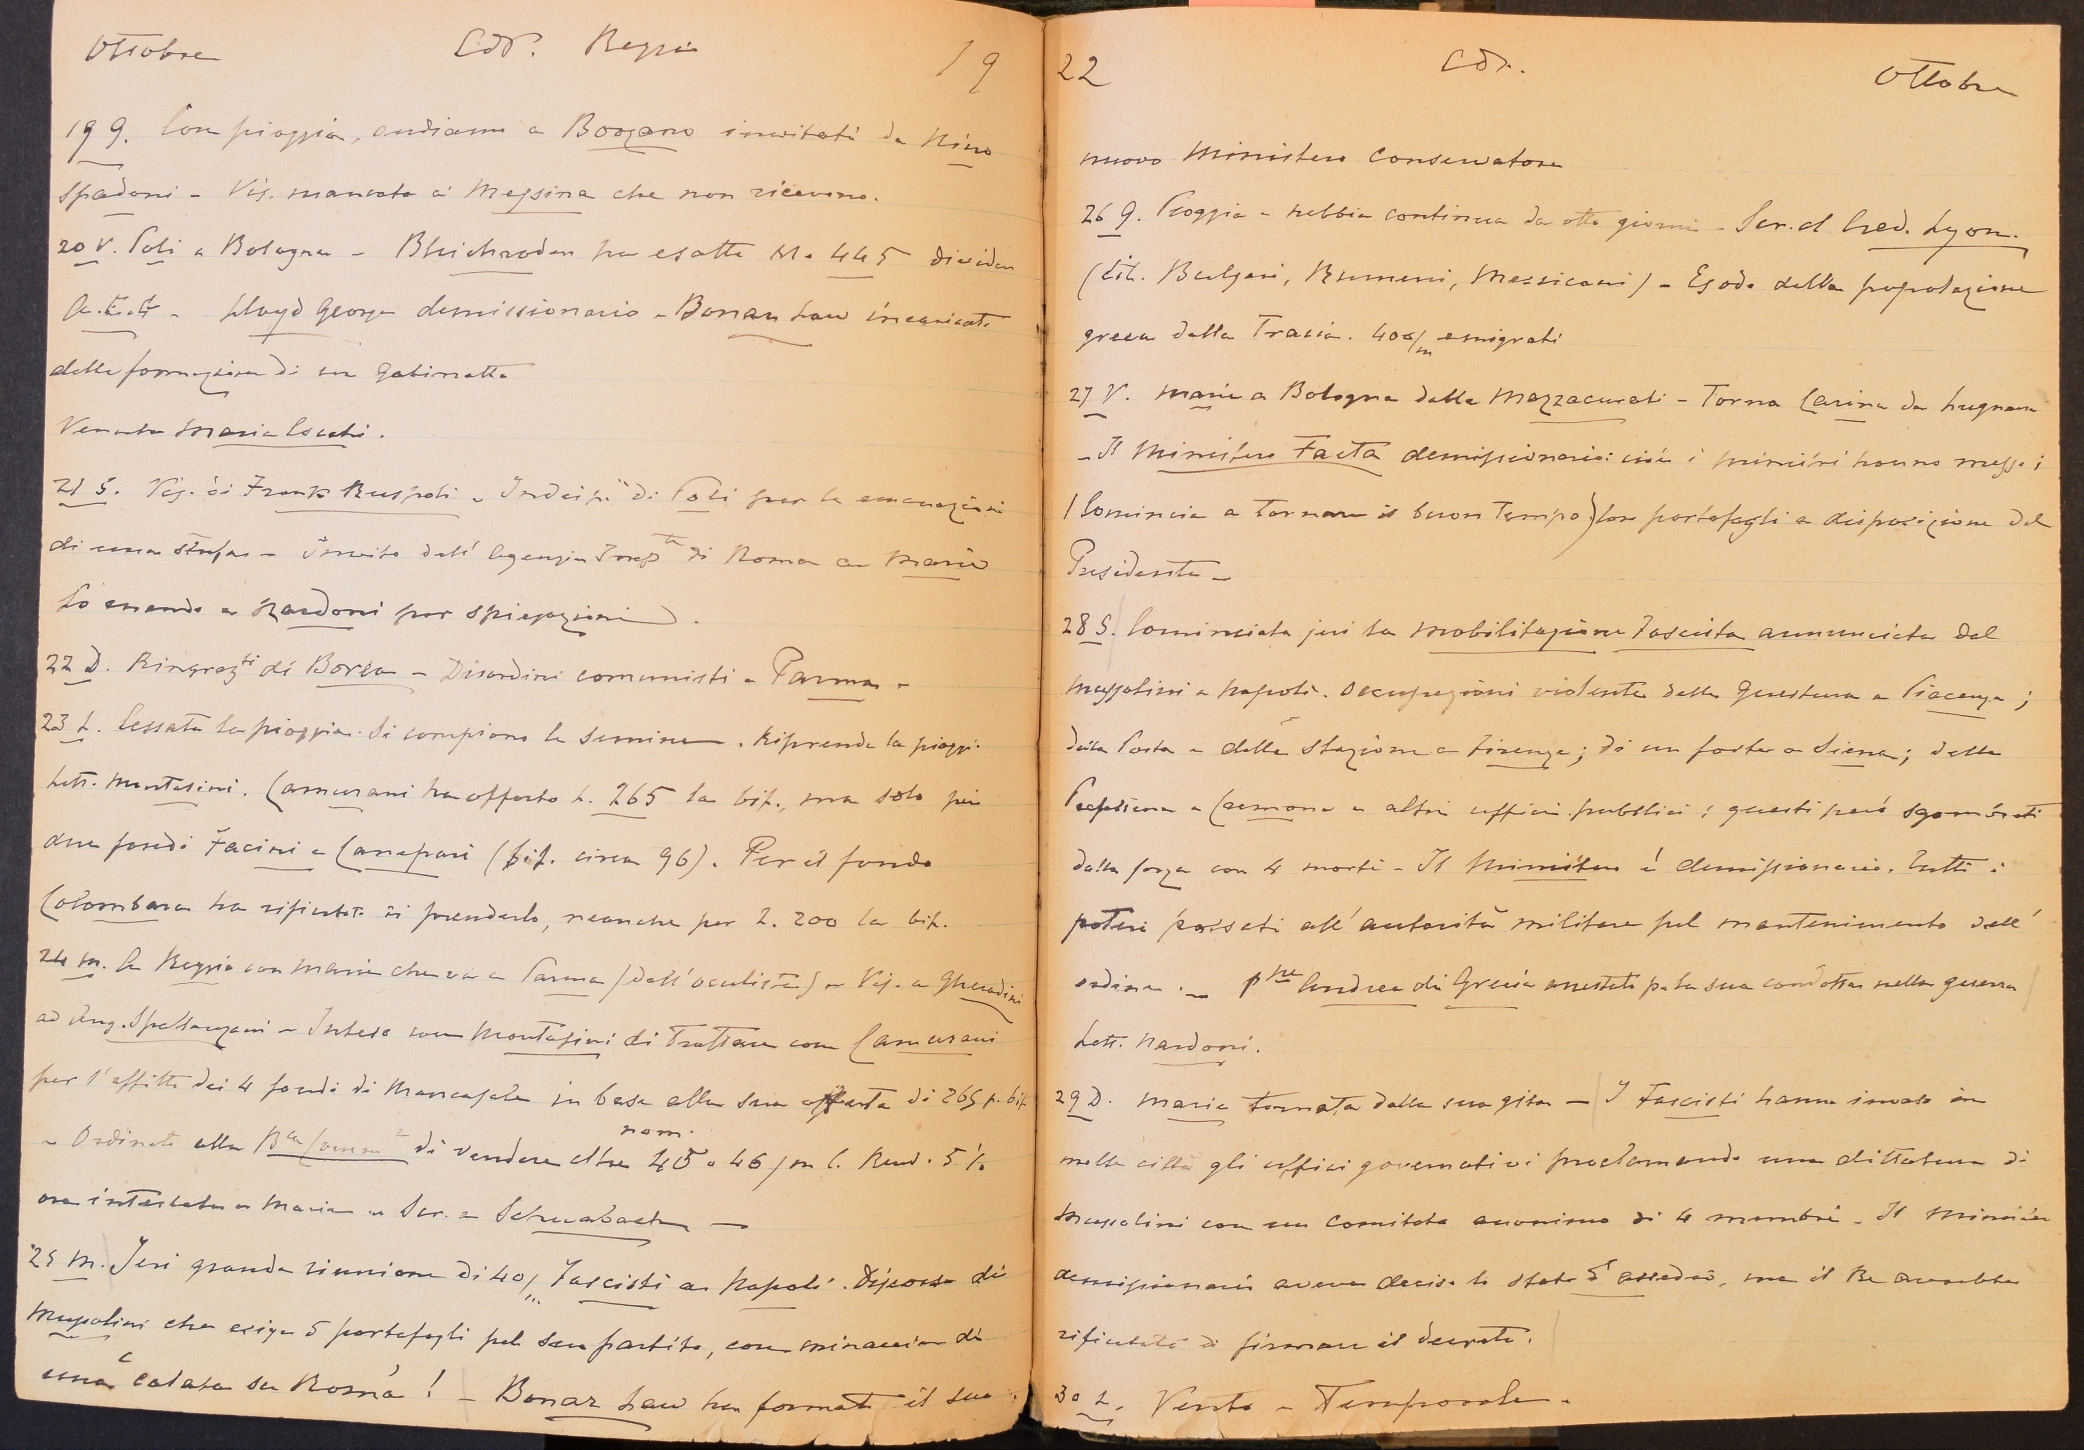 Ottobre Cdr. Reggio 19
19 G. Con pioggia, andiamo a Bogzano invitati da Nino
Spadoni - Vis. mancata ai Messina che non ricevono.
20 V. Poli a Bologna - Bleichroden ha esatto M. 445 dividen
A.E.G - Lloyd George demissionario - Bonar Law incaricato
della formazione di un Gabinetto
Venuta Maria Cocchi.
21 S. Vis. di Ruspoli - di Poli per le emanazioni
di una stufa - Invito dall' Agenzia di Roma a Marie
Lo mando a Nardoni per spiegazioni.
22 D. Ringraz.ti di Borea - Disordini comunisti a Parma -
23 L. Cessata la pioggia. Si compiono le semine. Riprende la pioggi.
Lett. Montasini. Camurani ha offerto L. 265 la bif., ma solo pei
due fondi Facini e Canepari (bif. circa 96). Per il fondo
Colombara ha rifiutato di prenderlo, neanche per L. 200 la bif.
24 M. A Reggio con Marie che va a Parma (dall' oculista) - Vis. a Gherardini
ad Ang. Spallanzani - Inteso con Montasini di trattare con Camurani
per l'affitto dei 4 fondi di Mancasale in base alla sua offerta di 265 p. bif
- Ordinato alla B.ca Comm. di vendere altre 45 o 46/m L. nom. Rend. 5%
ora intestata a Marie - Scr. a Schwabach -
25 M. Ieri grande riunione di 40/m Fascisti a Napoli. Discorso di
Mussolini che esige 5 portafogli pel suo partito, con minaccia di
una calata su Roma! - Bonar Law ha formato il suo
22 Cdr. Ottobre
nuovo Ministero conservatore
26 G. Pioggia e nebbia continua da otto giorni - Scr. al Cred. Lyon.
(tit. Bulgari, Rumeni, Messicani) - Esodo della popolazione
greca dalla Tracia. 400/m emigrati
27 V. Marie a Bologna dalle Mazzacurati - Torna Carina da Lugnano
- Il Ministero Facta demissionario: cioè i ministri hanno messo i
(Comincia a tornare il buon tempo) loro portafogli a disposizione del
Presidente -
28 S. Cominciata jeri la mobilitazione Fascista annunciata dal
Mussolini a Napoli. Occupazioni violente della Questura a Piacenza;
della Posta e della Stazione a Firenze; di un forte a Siena; della
Prefettura a Cremona e altri uffici pubblici; questi però sgombrati
dalla forza con 4 morti - Il Ministero è demissionario. Tutti i
poteri passati all' autorità militare pel mantenimento dell'
ordine. - P.pe Andrea di Grecia arrestato p. la sua condotta nella guerra
Lett. Nardoni.
29 D. Marie tornata dalla sua gita - I Fascisti hanno invaso in
molte città gli uffici governativi proclamando una dittatura di
Mussolini con un comitato anonimo di 4 membri - Il Ministero
demissionario aveva deciso lo stato d'assedio, ma il Re avrebbe
rifiutato di firmare il decreto.
30 L. Vento - Temporale -